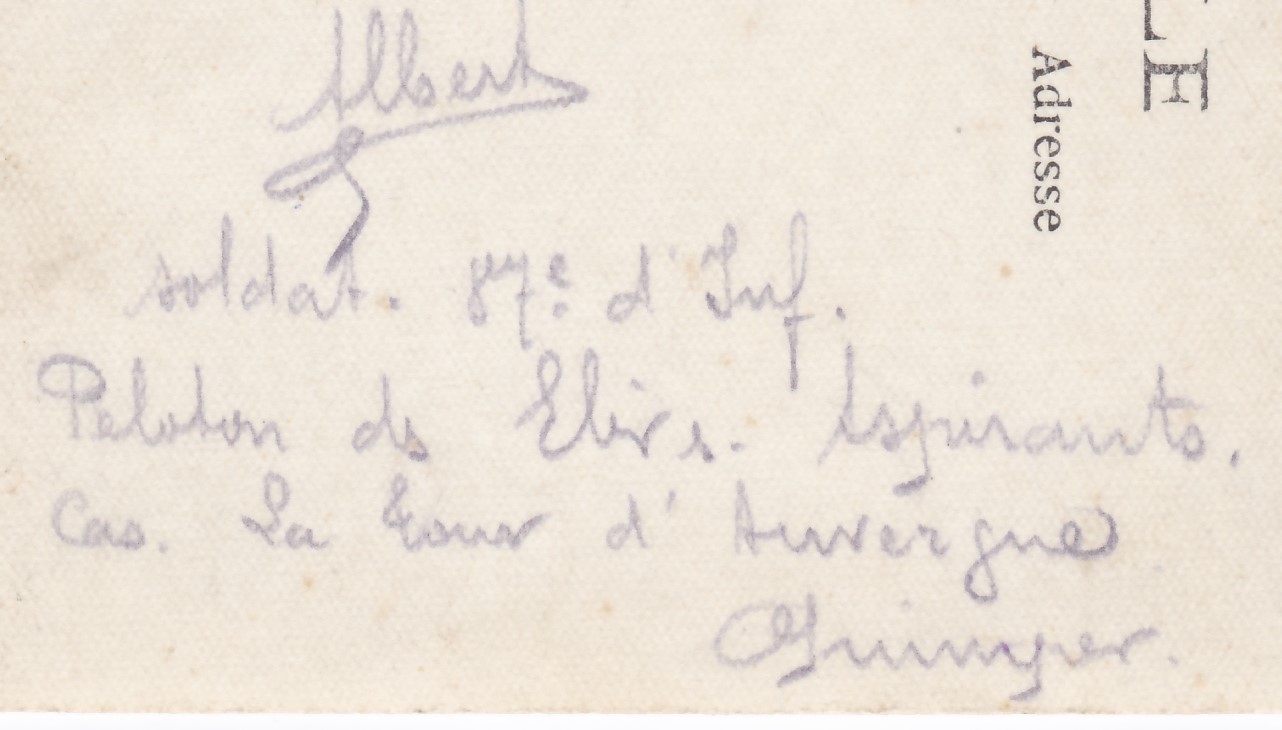 Albert
soldat. 87e d'Inf.
Peloton des Elèves. Aspirants.
Cas. La Tour d'Auvergne
Quimper.
Adresse